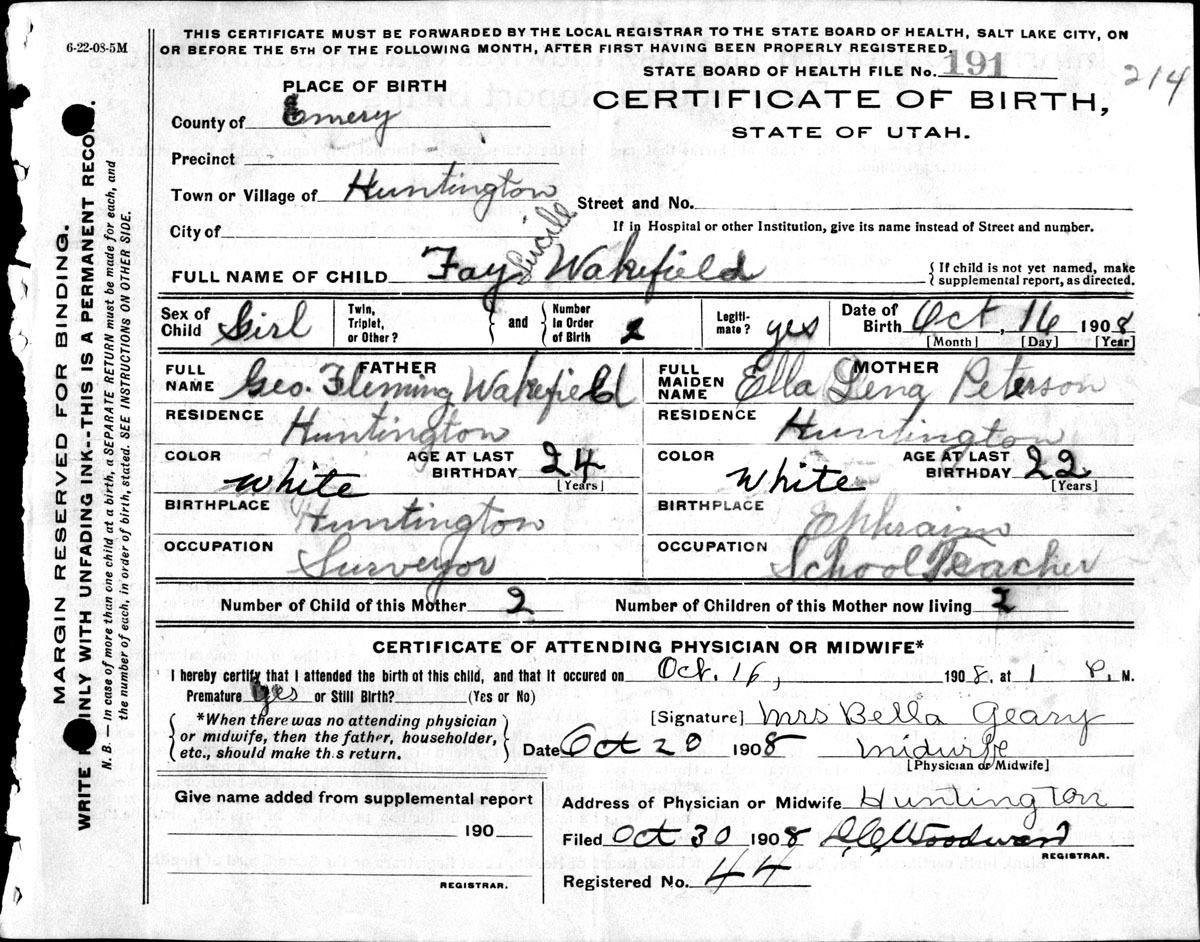 6-22-08-5M
THIS CERTIFICATE MUST BE FORWARDED BY THE LOCAL REGISTRAR TO THE STATE BOARD OF HEALTH, SALT LAKE CITY, ON
OR BEFORE THE 5TH OF THE FOLLOWING MONTH, AFTER FIRST HAVING BEEN PROPERLY REGISTERED.
STATE BOARD OF HEALTH FILE No. 191
214
PLACE OF BIRTH
CERTIFICATE OF BIRTH,
STATE OF UTAH.
County of Emery
Precinct
Town or Village of Huntington
Street and No.
City of
If in Hospital or other Institution, give its name instead of Street and number.
FULL NAME OF CHILD Fay Lucill Wakefield
{ If child is not yet named, make
supplemental report, as directed.
Sex of Child Girl
Twin, Triplet, or Other? } and { Number In Order of Birth 2
Legiti-mate? yes
Date of Birth Oct, 16 1908
[Month] [Day] [Year]
FATHER
FULL NAME Geo. Fleming Wakefield
MOTHER
FULL MAIDEN NAME Ella Lena Peterson
RESIDENCE Huntington
RESIDENCE Huntington
COLOR White AGE AT LAST BIRTHDAY 24 [Years]
COLOR White AGE AT LAST BIRTHDAY 22 [Years]
BIRTHPLACE Huntington
BIRTHPLACE Ephraim
OCCUPATION Surveyor
OCCUPATION School Teacher
Number of Child of this Mother 2 Number of Children of this Mother now living 2
CERTIFICATE OF ATTENDING PHYSICIAN OR MIDWIFE*
I hereby certify that I attended the birth of this child, and that it occured on Oct. 16, 1908, at 1 P. M.
Premature yes or Still Birth? (Yes or No)
{ *When there was no attending physician
or midwife, then the father, householder,
etc., should make this return. }
[Signature] Mrs Bella Geary
Date Oct 20 1908 midwife
[Physician or Midwife]
Give name added from supplemental report
190
REGISTRAR.
Address of Physician or Midwife Huntington
Filed Oct 30 1908 Woodward
REGISTRAR.
Registered No. 44
MARGIN RESERVED FOR BINDING.
WRITE INLY WITH UNFADING INK--THIS IS A PERMANENT RECOR.
N. B. — In case of more than one child at a birth, a SEPARATE RETURN must be made for each, and
the number of each, in order of birth, stated. SEE INSTRUCTIONS ON OTHER SIDE.